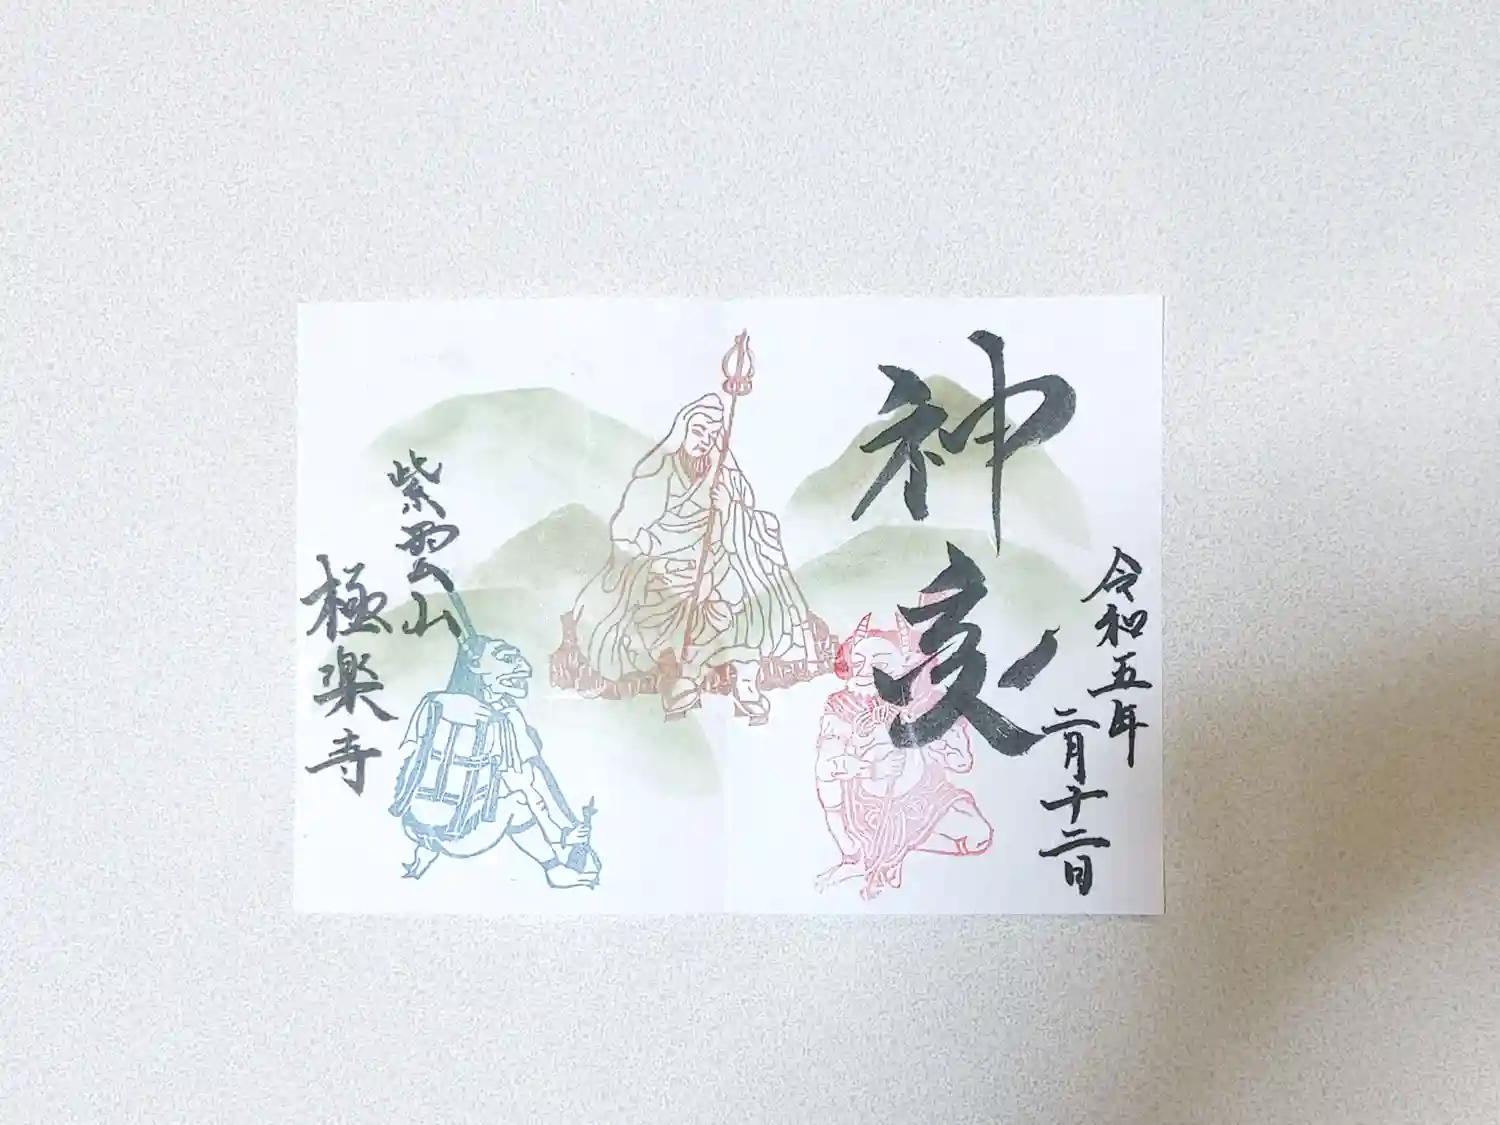 令和五年
二月十二日
神変
紫雲山
極楽寺